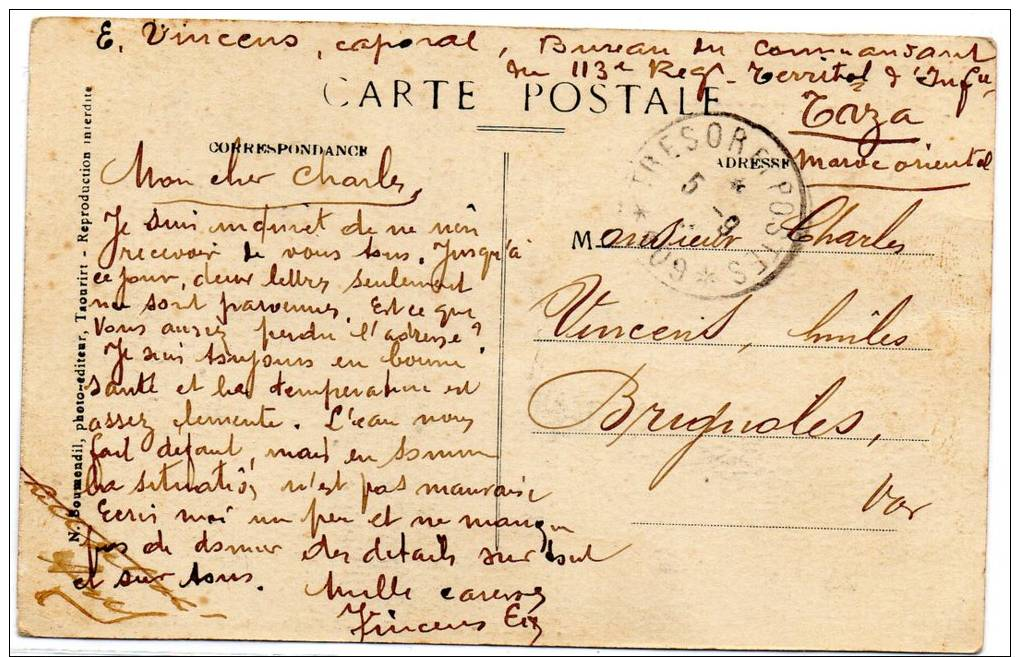 E. Vincens, caporal, Bureau du Commandant
du 113e Reg. Territal d'Infie
Taza
Maroc oriental
CARTE POSTALE
CORRESPONDANCE
ADRESSE
TRESOR ET POSTES
5 - 9
* 609 *
Mon cher Charles,
Je suis inquiet de ne rien
recevoir de vous tous. Jusqu'à
ce jour, deux lettres seulement
me sont parvenues. Est ce que
vous auriez perdu l'adresse?
Je suis toujours en bonne
santé et la température est
assez clemente. L'eau nous
fait défaut, mais en somme
la situation n'est pas mauvaise
Ecris moi un peu et ne manque
pas de donner des details sur tout
et sur tous. Mille caresses
Vincens
Monsieur Charles
Vincens,
Brignoles,
Var
N. Boumendil, photo-éditeur, Taourirt - Reproduction interdite